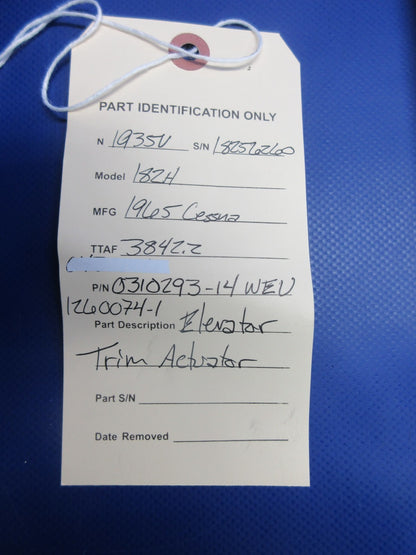 PART IDENTIFICATION ONLY
N 1935V S/N 18256260
Model 182H
MFG 1965 Cessna
TTAF 3842.2
P/N 0310293-14 WEU
1260074-1
Part Description Elevator
Trim Actuator
Part S/N
Date Removed